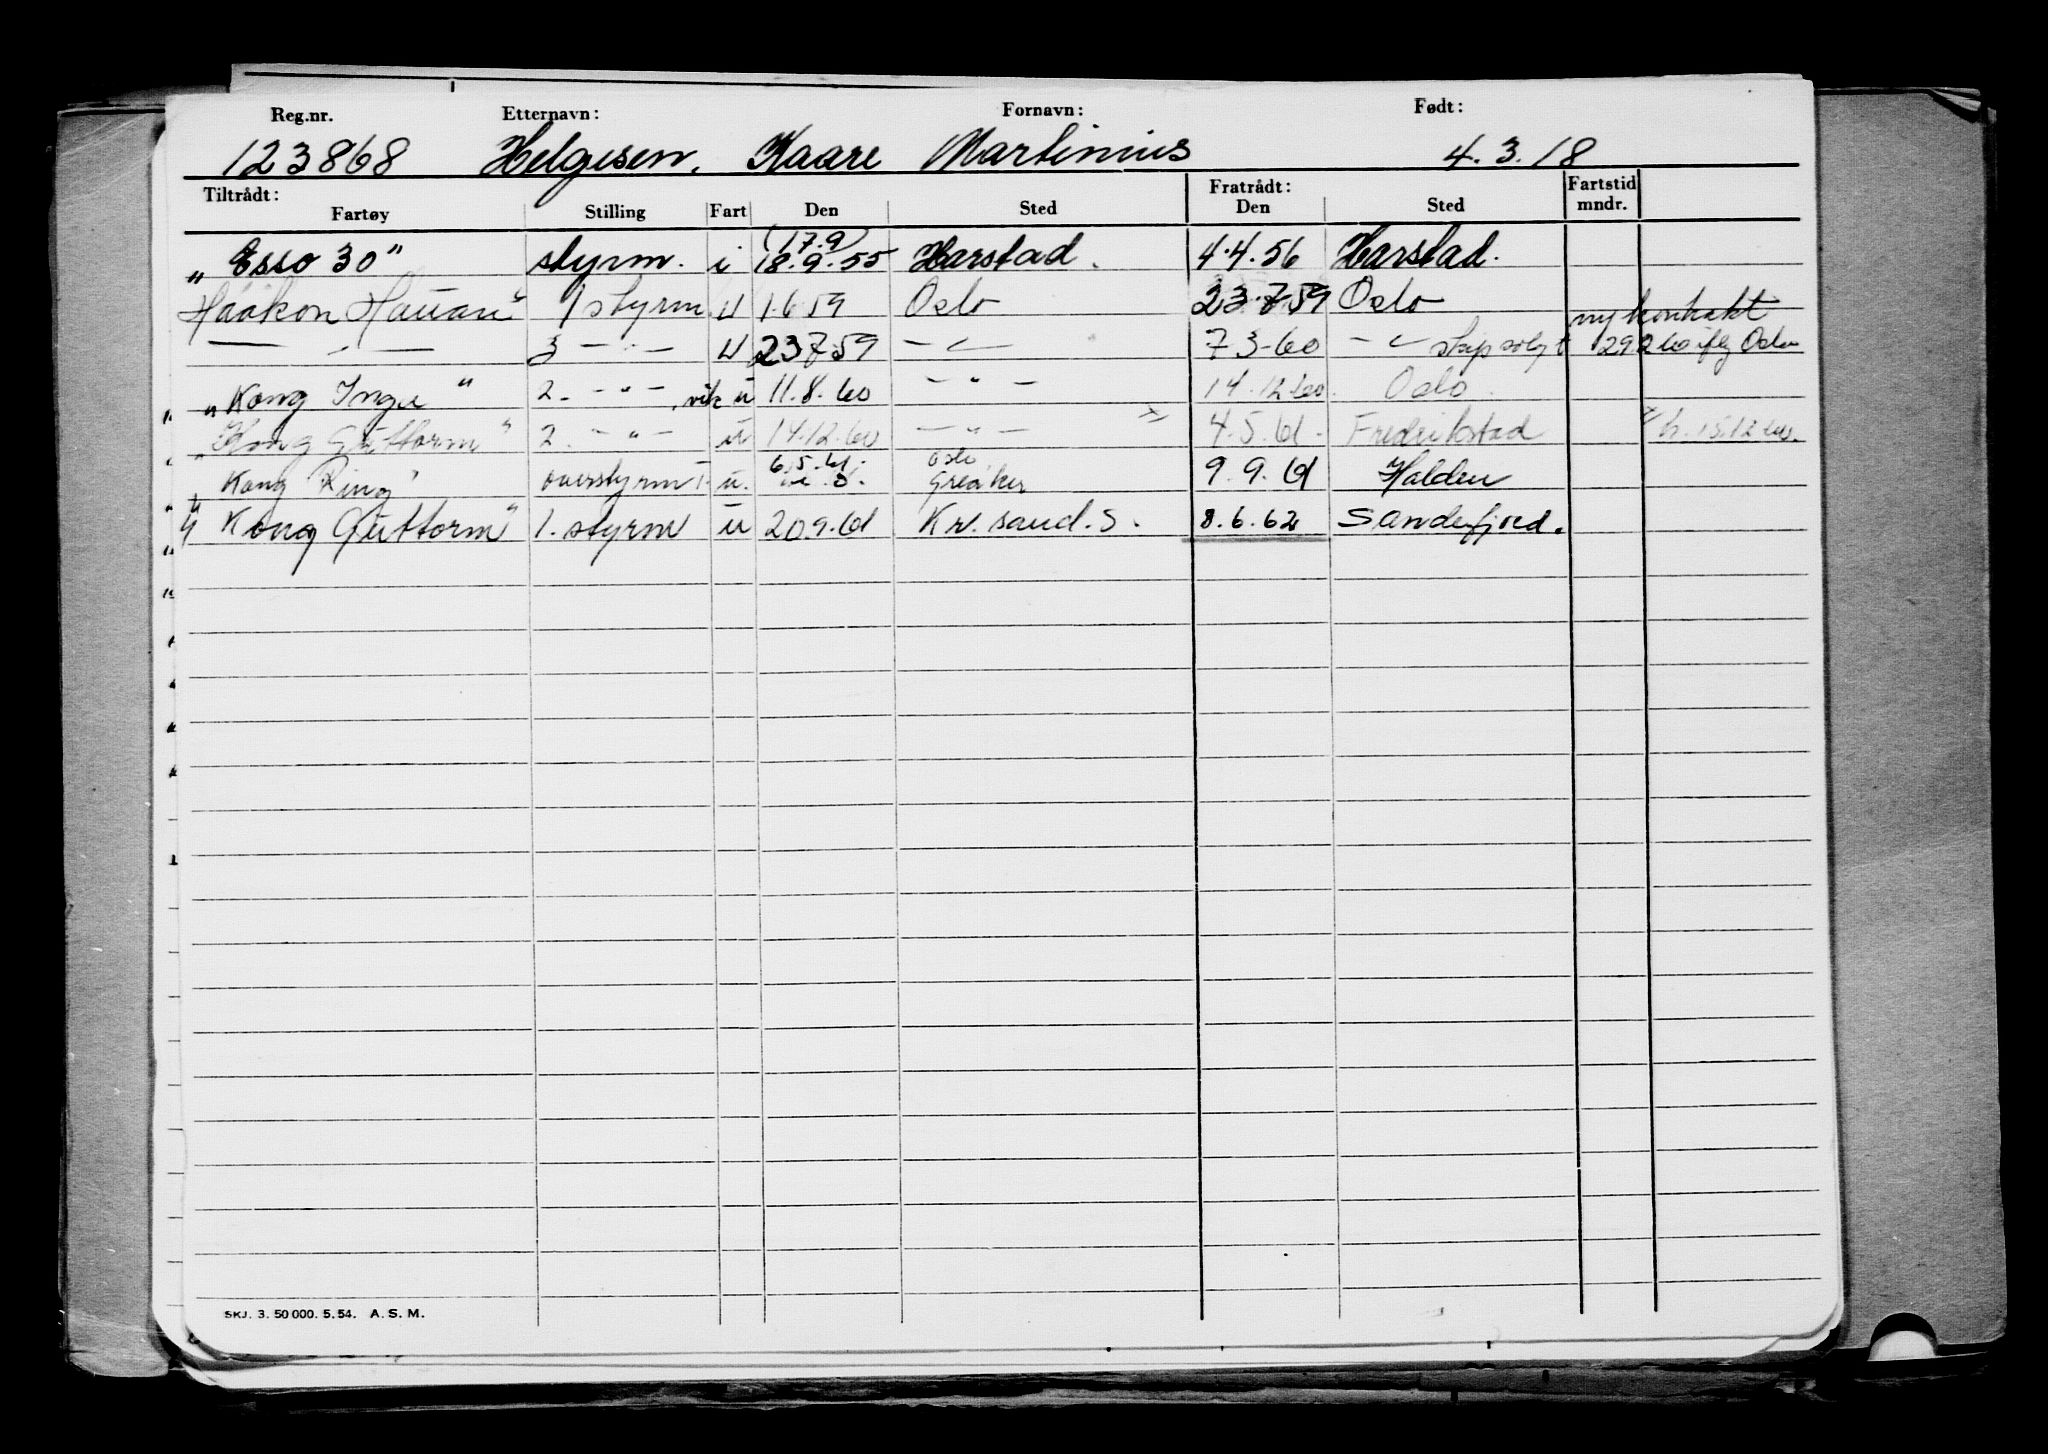 Reg.nr. Etternavn: Fornavn: Født:
123868 Helgesen, Kaare Martinius 4.3.18
Tiltrådt: Fratrådt: Fartstid
Fartøy Stilling Fart Den Sted Den Sted mndr.
(17.9)
„Esso 30" styrm. i 18.9.55 Harstad. 4.4.56 Harstad.
Haakon Hauan" 1 styrm u 1.6.59 Oslo 23.7.59 Oslo
ny kontrakt
— " — 3 — " — u 23.7.59 — " — 7.3.60 — " — skip solgt 29.2.60 iflg Oslo
„Kong Inge" 2. — " —, vik u 11.8.60 — " — 14.12.60. Oslo.
„Kong Guttorm" 2. — " — u 14.12.60 — " — x 4.5.61. Fredrikstad x h. 15.12.60.
6.5.61. Oslo
„Kong Ring" overstyrm u. Greåker 9.9.61 Halden
„Kong Guttorm" 1. styrm u 20.9.61 Kr. sand. S. 8.6.62 Sandefjord.
SKJ. 3. 50 000. 5. 54. A. S. M.